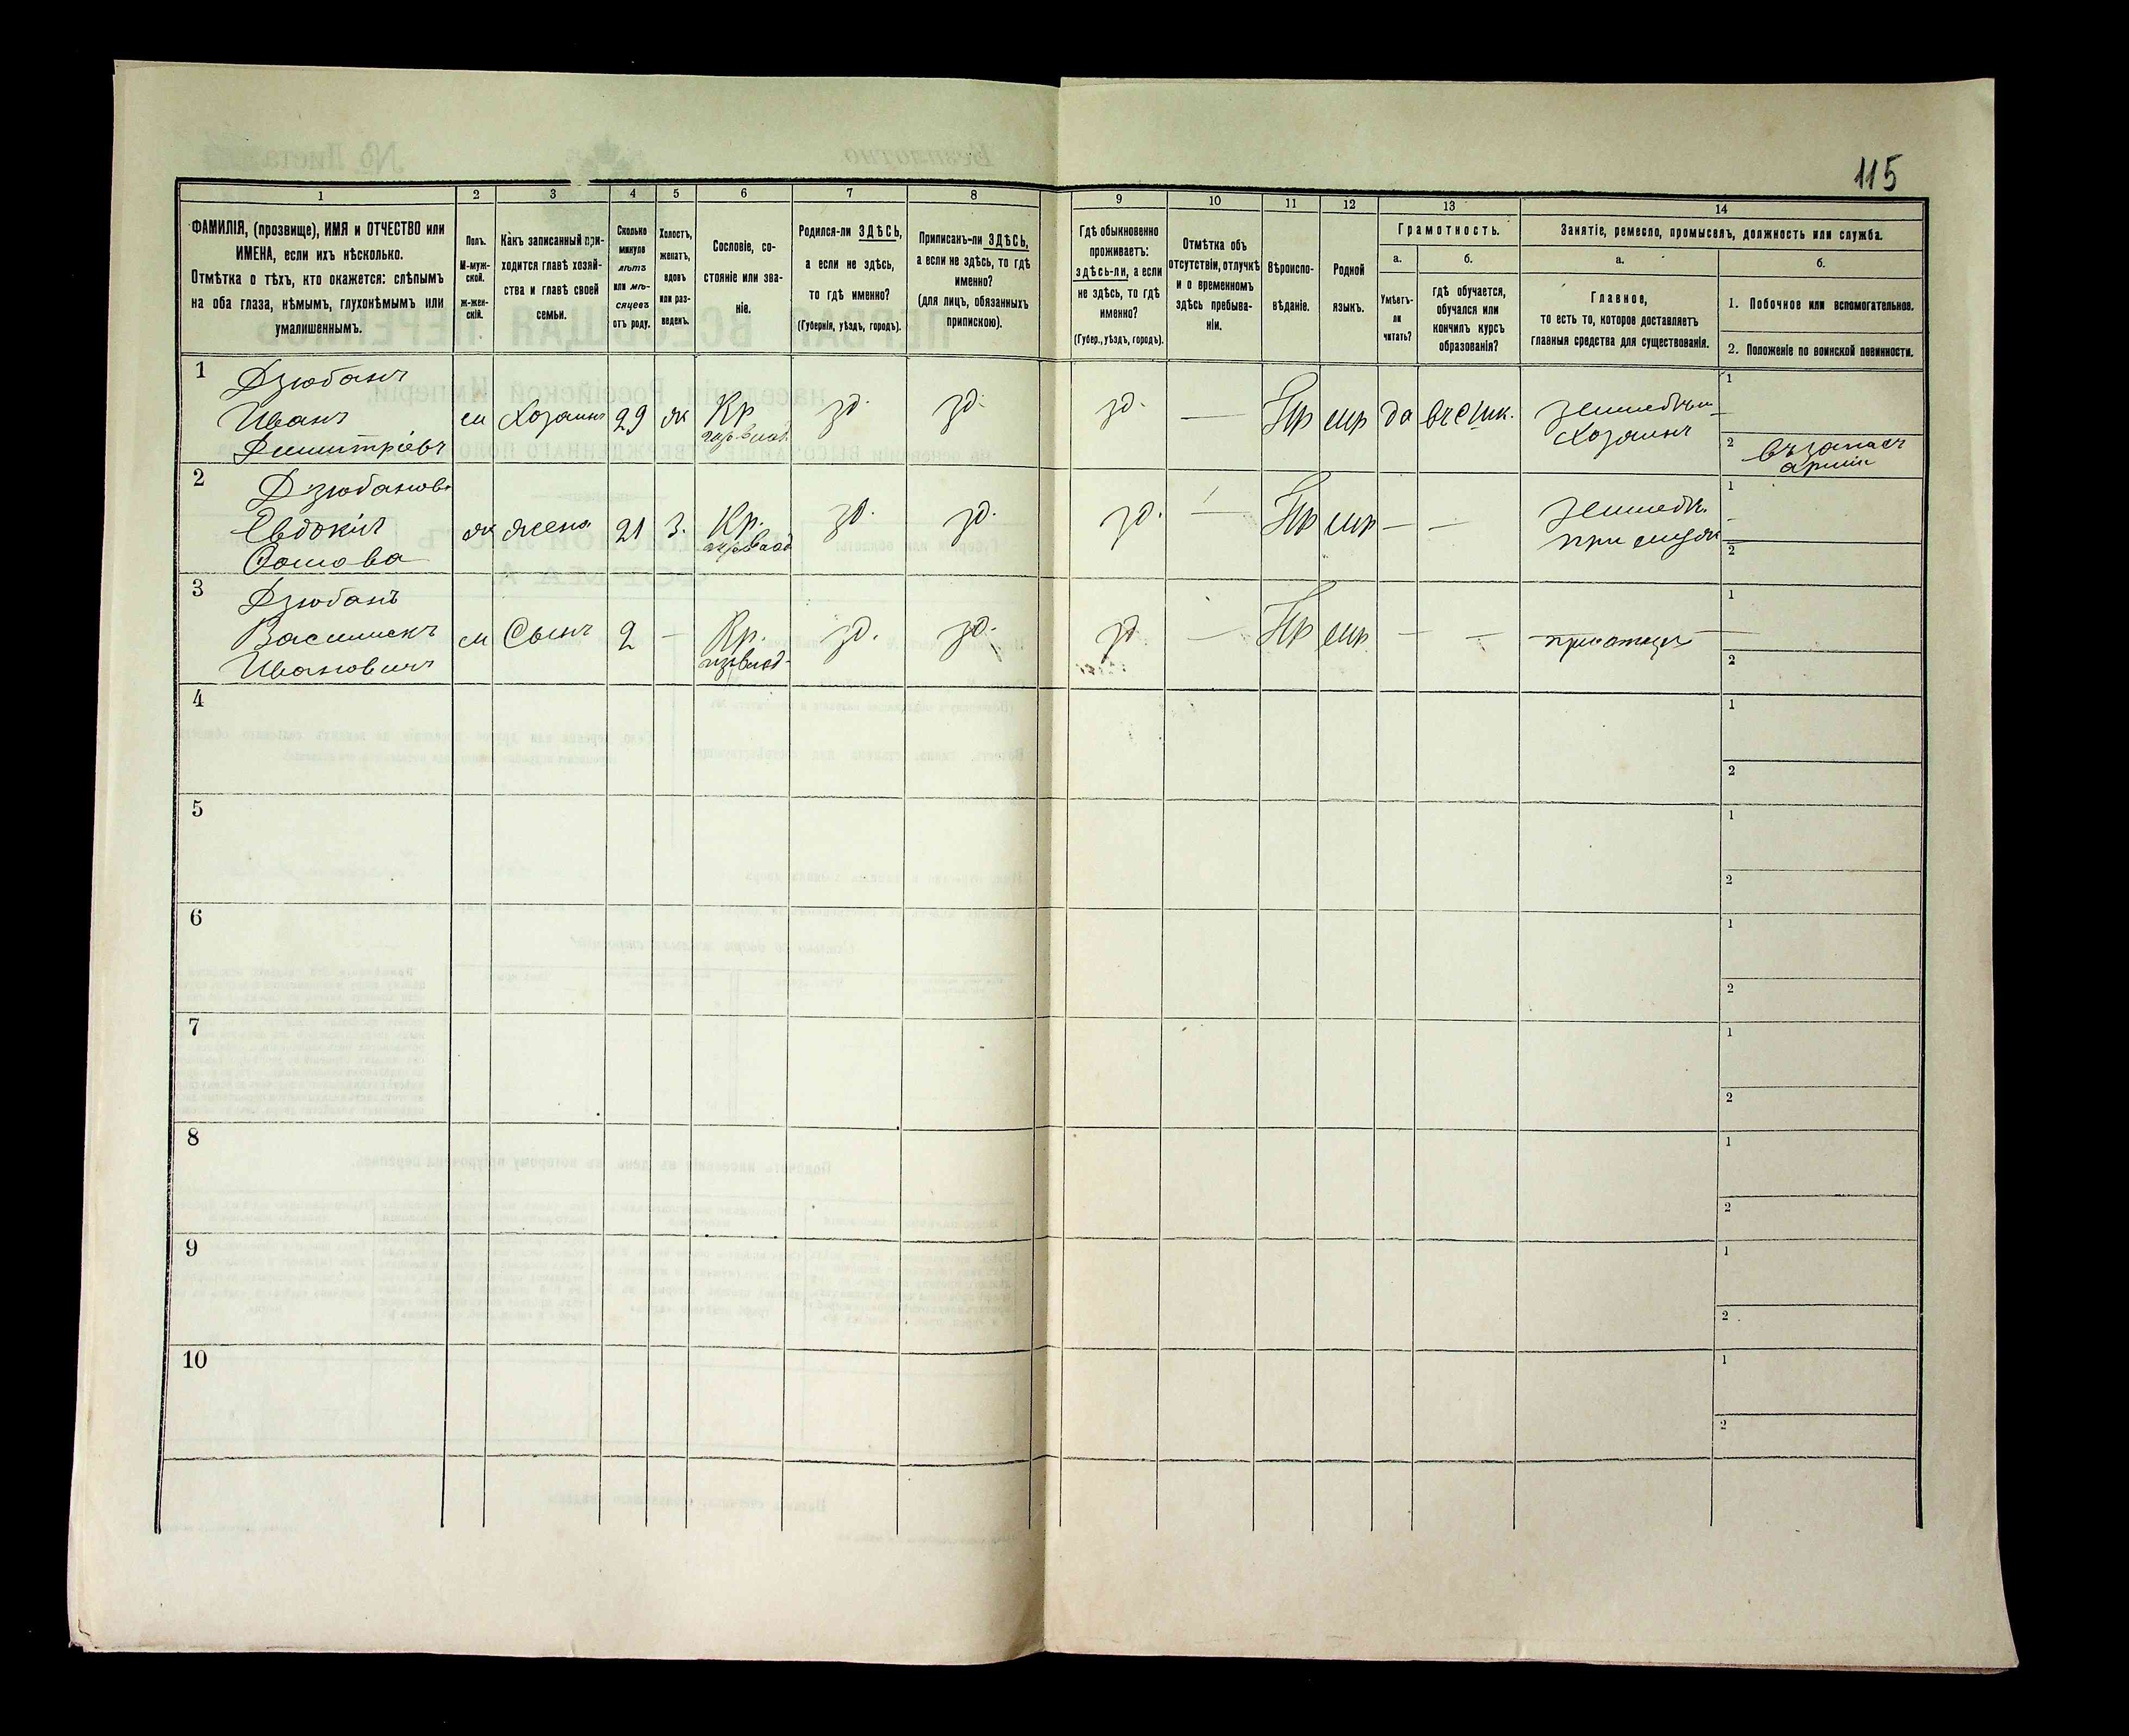 115
1 2 3 4 5 6 7 8 9 10 11 12 13 14
ФАМИЛІЯ, (прозвище), ИМЯ и ОТЧЕСТВО или
ИМЕНА, если ихъ нѣсколько.
Отмѣтка о тѣхъ, кто окажется: слѣпымъ
на оба глаза, нѣмымъ, глухонѣмымъ или
умалишеннымъ.
Полъ.
М-муж-
ской.
ж-жен-
скій.
Какъ записанный при-
ходится главѣ хозяй-
ства и главѣ своей
семьи.
Сколько
минуло
лѣтъ
или мѣ-
сяцевъ
отъ роду.
Холостъ,
женатъ,
вдовъ
или раз-
веденъ.
Сословіе, со-
стояніе или зва-
ніе.
Родился-ли ЗДѢСЬ,
а если не здѣсь,
то гдѣ именно?
(Губернія, уѣздъ, городъ).
Приписанъ-ли ЗДѢСЬ,
а если не здѣсь, то гдѣ
именно?
(для лицъ, обязанныхъ
припискою).
Гдѣ обыкновенно
проживаетъ:
здѣсь-ли, а если
не здѣсь, то гдѣ
именно?
(Губер., уѣздъ, городъ).
Отмѣтка объ
отсутствіи, отлучкѣ
и о временномъ
здѣсь пребыва-
ніи.
Вѣроиспо-
вѣданіе.
Родной
языкъ.
Грамотность.
а.
Умѣетъ-
ли
читать?
б.
гдѣ обучается,
обучался или
кончилъ курсъ
образованія?
Занятіе, ремесло, промыселъ, должность или служба.
а.
Главное,
то есть то, которое доставляетъ
главныя средства для существованія.
б.
1. Побочное или вспомогательное.
2. Положеніе по воинской повинности.
1
Дзюбанъ
Иванъ
Димитріевъ
м Хозяинъ 29 ж Кр зд. зд. зд. — Пр мр да въ с шк.
Хозяинъ
1
2 въ запасѣ
арміи
2
Дзюбанова
Евдокія
Фомова
ж жена 21 з. Кр. зд. зд. зд. — Пр мр — —
1
2
3
Дзюбанъ
Василискъ
Ивановичъ
м Сынъ 2 — Кр. зд. зд. зд — Пр мр — —
1
2
4
1
2
5
1
2
6
1
2
7
1
2
8
1
2
9
1
2
10
1
2